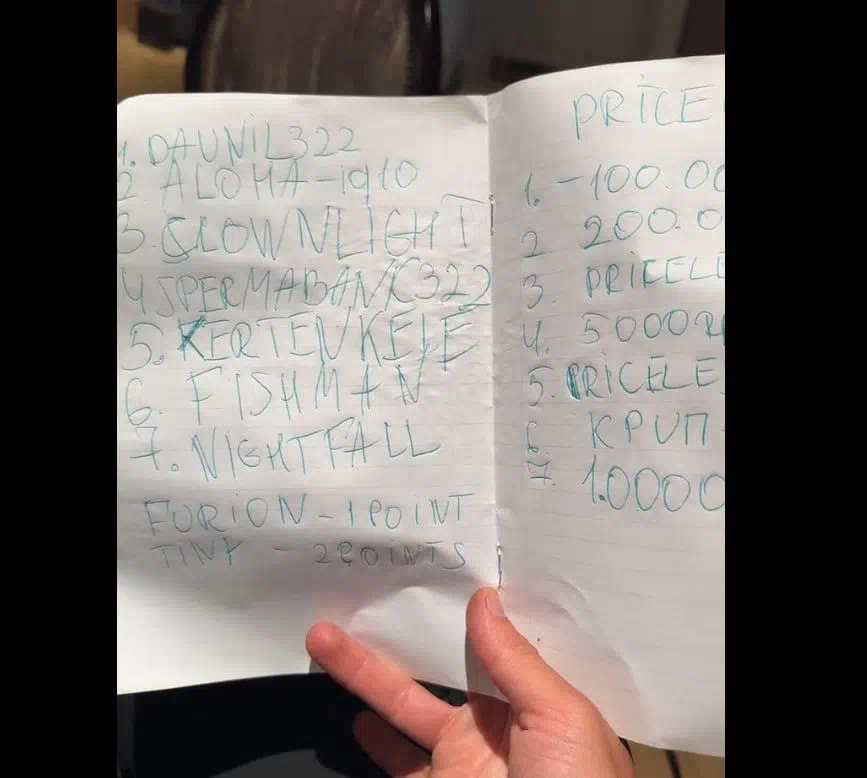 1. DAUNIL322
2 ALOHA-iq10
3. SLOWNLIGHT
4 SPERMABANK322
5. KERTENKELE
6. FISHMAN
7. NIGHTFALL
FURION - 1 POINT
TINY - 2 POINTS
PRICE
1. -100.00
2 200.0
3. PRICELE
4. 5000R
5. PRICELE
6 КРИП
7. 1.0000